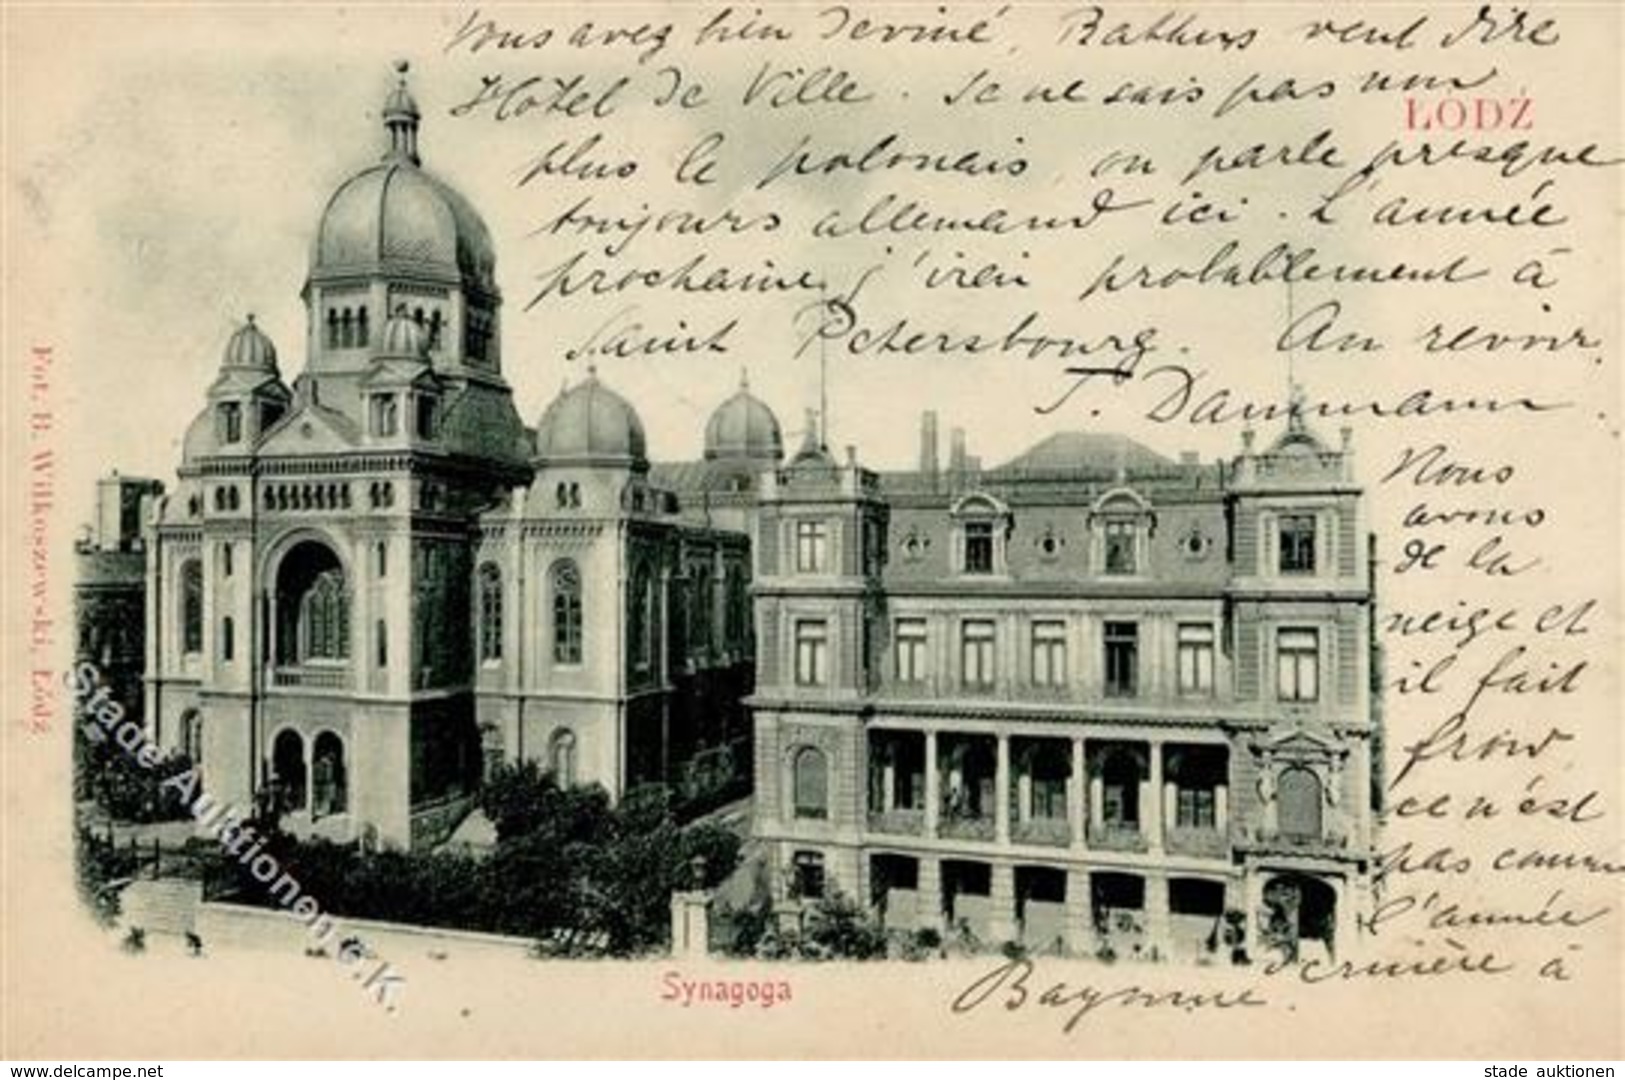 Vous avez bien deviné, Rathus veut dire
Hôtel de Ville. Je ne sais pas non
ŁÓDŹ
plus le polonais, on parle presque
toujours allemand ici. L'année
prochaine j'irai probablement à
Saint Petersbourg. Au revoir.
T. Dammann.
Nous
avons
de la
neige et
il fait
froid,
ce n'est
pas comme
l'année
dernière à
Bayonne.
Fot. B. Wilkoszewski, Łódź
Stade Auktionen e.K.
Synagoga
www.delcampe.net
stade auktionen